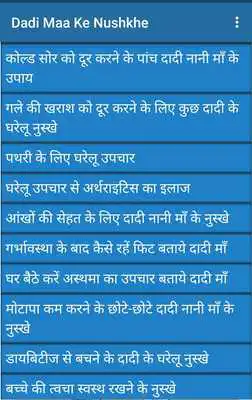 Dadi Maa Ke Nushkhe
कोल्ड सोर को दूर करने के पांच दादी नानी माँ के
उपाय
गले की खराश को दूर करने के लिए कुछ दादी के
घरेलू नुस्खे
पथरी के लिए घरेलू उपचार
घरेलू उपचार से अर्थराइटिस का इलाज
आंखों की सेहत के लिए दादी नानी माँ के नुस्खे
गर्भावस्था के बाद कैसे रहें फिट बताये दादी माँ
घर बैठे करें अस्थमा का उपचार बताये दादी माँ
मोटापा कम करने के छोटे-छोटे दादी नानी माँ के
नुस्खे
डायबिटीज से बचने के दादी के घरेलू नुस्खे
बच्चे की त्वचा स्वस्थ रखने के नुस्खे